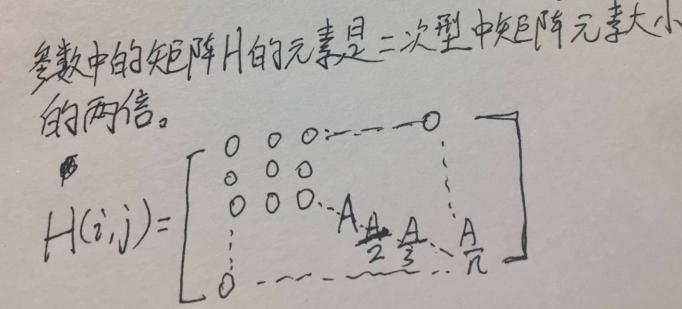 参数中的矩阵H的元素是二次型中矩阵元素大小
的两倍。
0 0 0 --- 0
0 0 0
H(i,j)= 0 0 0 A A/2 A/3 A/n
0 ---